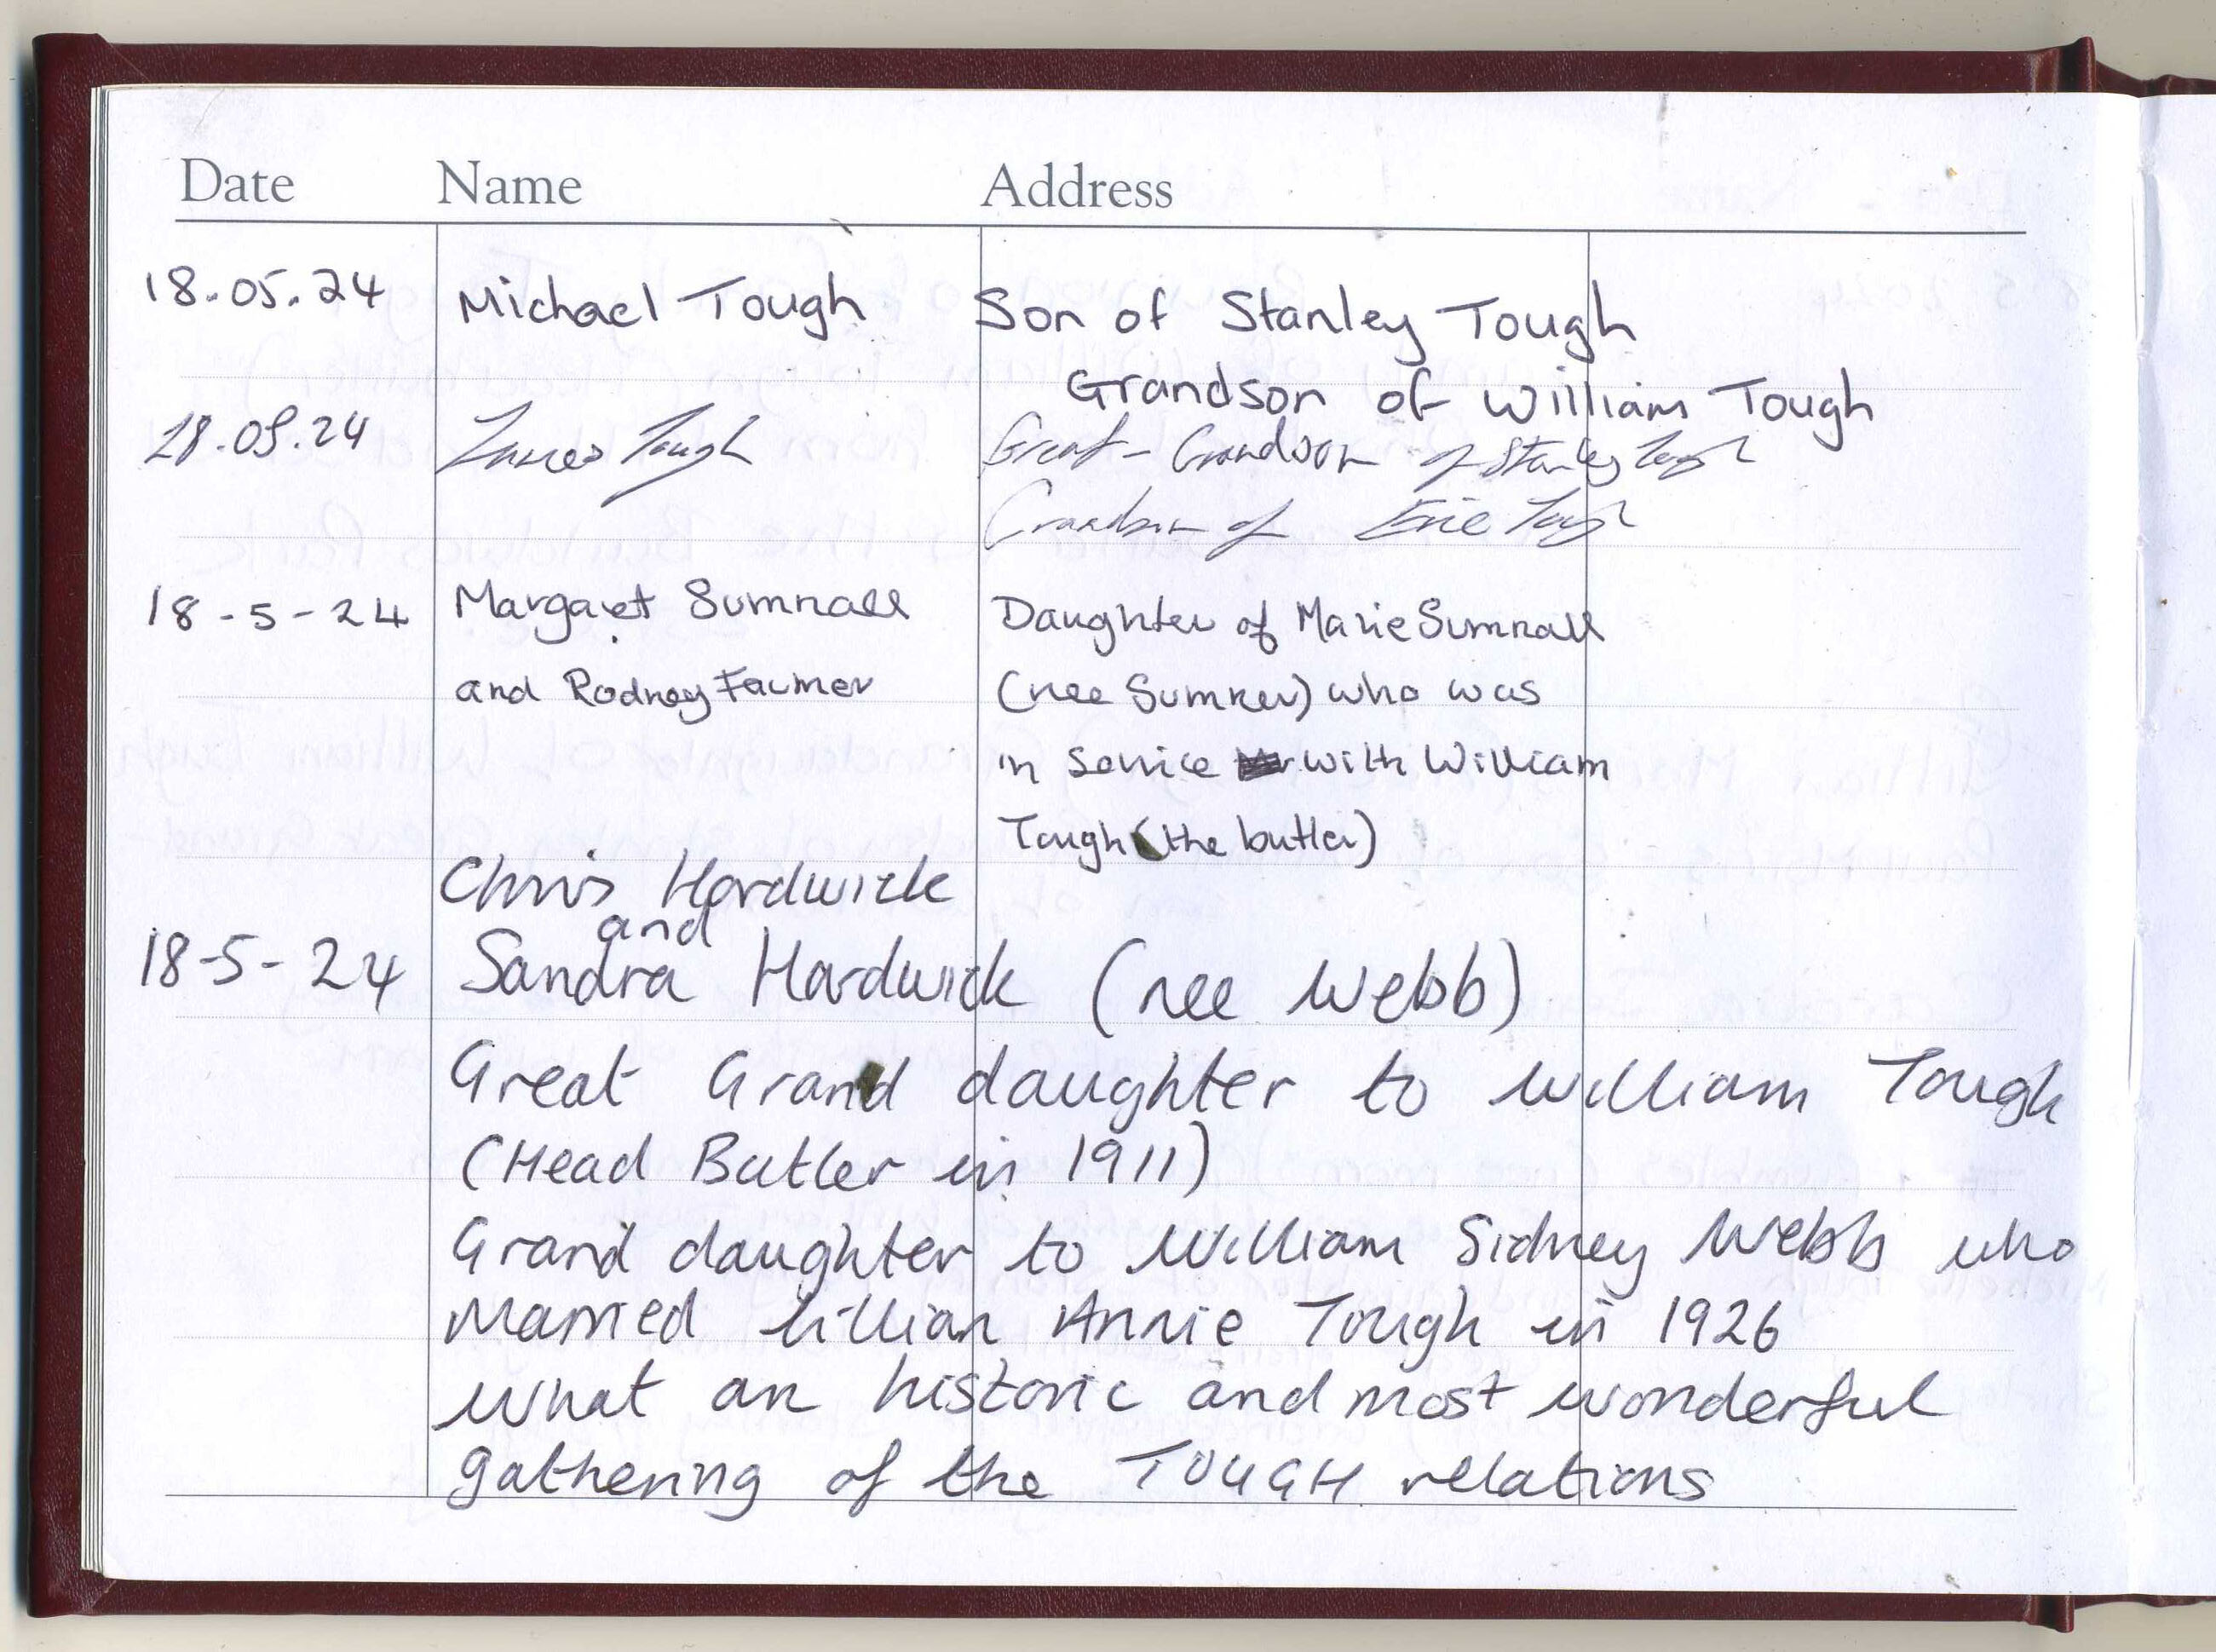 Date Name Address
18.05.24 Michael Tough Son of Stanley Tough
Grandson of William Tough
18.05.24 James Tough Great-Grandson of Stanley Tough
Grandson of Eric Tough
18-5-24 Margaret Sumnall Daughter of Marie Sumnall
and Rodney Farmer (nee Sumner) who was
in service with William
Tough (the butler)
Chris Hardwick
and
18-5-24 Sandra Hardwick (nee Webb)
Great Grand daughter to William Tough
(Head Butler in 1911)
Grand daughter to William Sidney Webb who
married Lillian Annie Tough in 1926
What an historic and most wonderful
gathering of the TOUGH relations